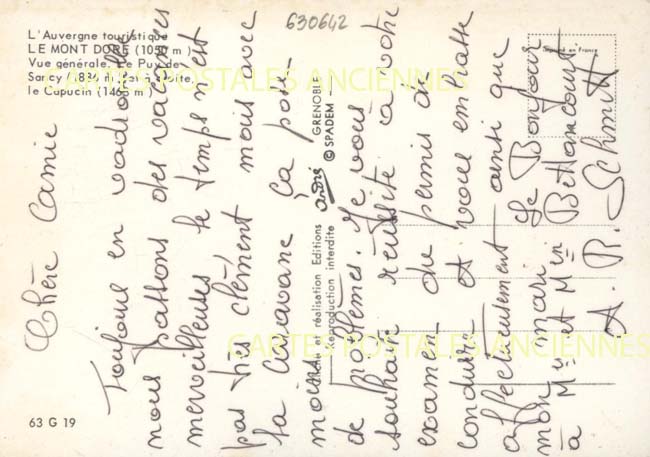 L'Auvergne touristique
LE MONT DORE (1050 m)
Vue générale. Le Puy de
Sancy (1886 m) et à droite,
le Capucin (1465 m)
630642
CARTES POSTALES ANCIENNES
CARTES POSTALES ANCIENNES
63 G 19
réalisation Editions André GRENOBLE
Reproduction interdite © SPADEM
Chère Camie
Toujours en vadrouille
nous passons des vacances
merveilleuses le temps n'est
pas très clément mais avec
la caravane ça pose
moins
de problèmes. Je vous
souhaite réussite à votre
examen de permis de
conduire et vous embrasse
affectueusement ainsi que
mon mari. Le Bonjour
à Mr et Me Bettancourt
A. R. Schmitt